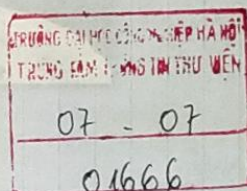 TRƯỜNG ĐẠI HỌC CÔNG NGHIỆP HÀ NỘI
TRUNG TÂM THÔNG TIN THƯ VIỆN
07 - 07
01666